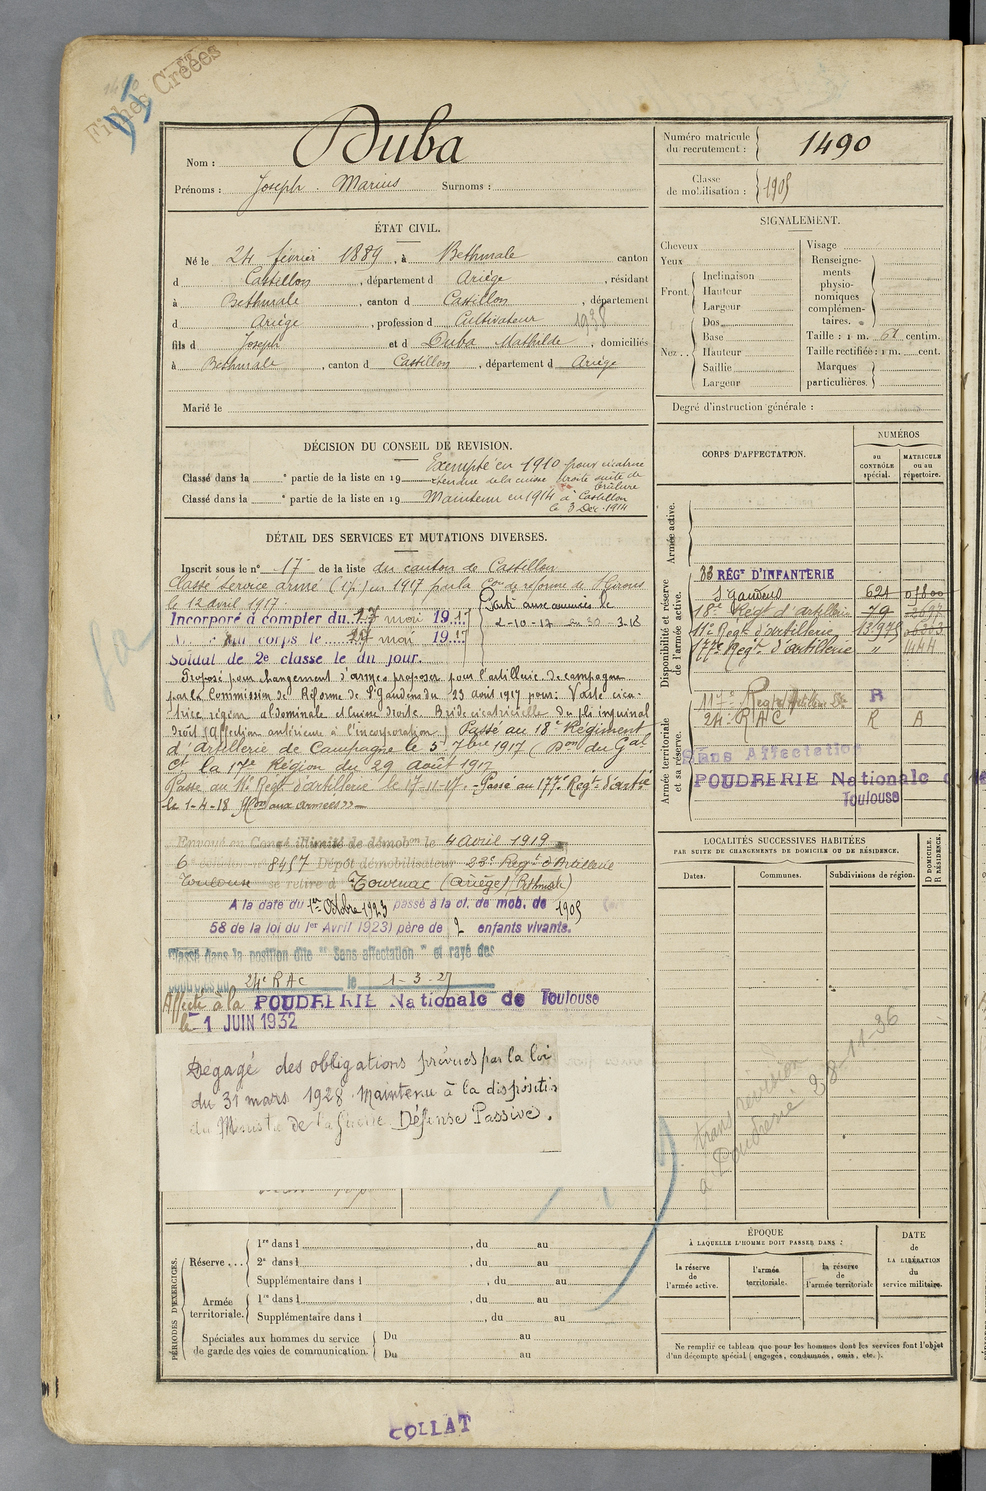 Fiches Créées
Nom : Duba
Prénoms : Joseph. Marius Surnoms :
Numéro matricule du recrutement : 1490
Classe de mobilisation : 1909
ÉTAT CIVIL.
Né le 24 février 1889, à Bethmale canton
d Castillon, département d Ariège, résidant
à Bethmale, canton d Castillon, département
d Ariège, profession d Cultivateur 1938
fils d Joseph et d Duba Mathilde, domiciliés
à Bethmale, canton d Castillon, département d Ariège
Marié le
SIGNALEMENT.
Cheveux
Yeux
Front. Inclinaison
Hauteur
Largeur
Nez.. Dos
Base
Hauteur
Saillie
Largeur
Visage
Renseignements physionomiques complémentaires.
Taille : 1 m. centim.
Taille rectifiée : 1 m. cent.
Marques particulières.
Degré d'instruction générale :
DÉCISION DU CONSEIL DE REVISION.
Classé dans la e partie de la liste en 19 Exempté en 1910 pour cicatrice
étendue de la cuisse droite suite de brûlure
Classé dans la e partie de la liste en 19 Maintenu en 1914 à Castillon
le 3 Déc. 1914
DÉTAIL DES SERVICES ET MUTATIONS DIVERSES.
Inscrit sous le no 17 de la liste du canton de Castillon
Classé Service armé en 1917 par la Con de réforme de St Girons
le 12 avril 1917.
Incorporé à compter du 17 mai 1917
au corps le 17 mai 1917
Soldat de 2e classe le du jour.
Parti aux armées le
2-10-17 au 30 3-18
Proposé pour changement d'armes proposé pour l'artillerie de campagne
par la Commission de Réforme de St Gaudens du 23 août 1917 pour: Vaste cica-
trice région abdominale et cuisse droite. Bride cicatricielle du pli inguinal
droit (affection antérieure à l'incorporation) Passé au 18e Régiment
d'Artillerie de Campagne le 5 7bre 1917 (Don du Gal
Ct la 17e Région du 29 Août 1917
Passé au 11e Régt d'artillerie le 17-11-17. Passé au 177e Régt d'artie
le 1-4-18 aux armées
Envoyé en Congé illimité de démobon le 4 Avril 1919
6 8457 Dépôt démobilisateur 23e Regt d'Artillerie
Toulouse se retire à (Ariège) Bethmale
A la date du 1er Octobre 1923 passé à la cl. de mob. de 1909
58 de la loi du 1er Avril 1923) père de 2 enfants vivants.
Classé dans la position dite "Sans affectation" et rayé des
24e RAC le 1-3-27
Affecté à la POUDRERIE Nationale de Toulouse
le 1 JUIN 1932
Dégagé des obligations prévues par la loi
du 31 mars 1928. Maintenu à la disposition
du Ministre de la Guerre Défense Passive.
CORPS D'AFFECTATION.
NUMÉROS
au CONTRÔLE spécial.
MATRICULE ou au répertoire.
Armée active.
Disponibilité et réserve de l'armée active.
83 RÉGt D'INFANTERIE
St Gaudens 621
18e Régt d'artillerie 79
11e Régt d'artillerie 13975
177e Régt d'artillerie " 1444
Armée territoriale et sa réserve.
117e R
24e RAC R A
Sans Affectation
POUDRERIE Nationale de
Toulouse
LOCALITÉS SUCCESSIVES HABITÉES
PAR SUITE DE CHANGEMENTS DE DOMICILE OU DE RÉSIDENCE.
Dates.
Communes.
Subdivisions de région.
D DOMICILE. R RÉSIDENCE.
trans revision
à Poudrerie 28-11-36
PÉRIODES D'EXERCICES.
Réserve... 1re dans l , du au
2e dans l , du au
Supplémentaire dans l , du au
Armée territoriale. 1re dans l , du au
Supplémentaire dans l , du au
Spéciales aux hommes du service de garde des voies de communication. Du au
Du au
ÉPOQUE
À LAQUELLE L'HOMME DOIT PASSER DANS :
la réserve de l'armée active.
l'armée territoriale.
la réserve de l'armée territoriale
DATE de LA LIBÉRATION du service militaire.
Ne remplir ce tableau que pour les hommes dont les services font l'objet
d'un décompte spécial (engagés, condamnés, omis, etc.).
COLLAT